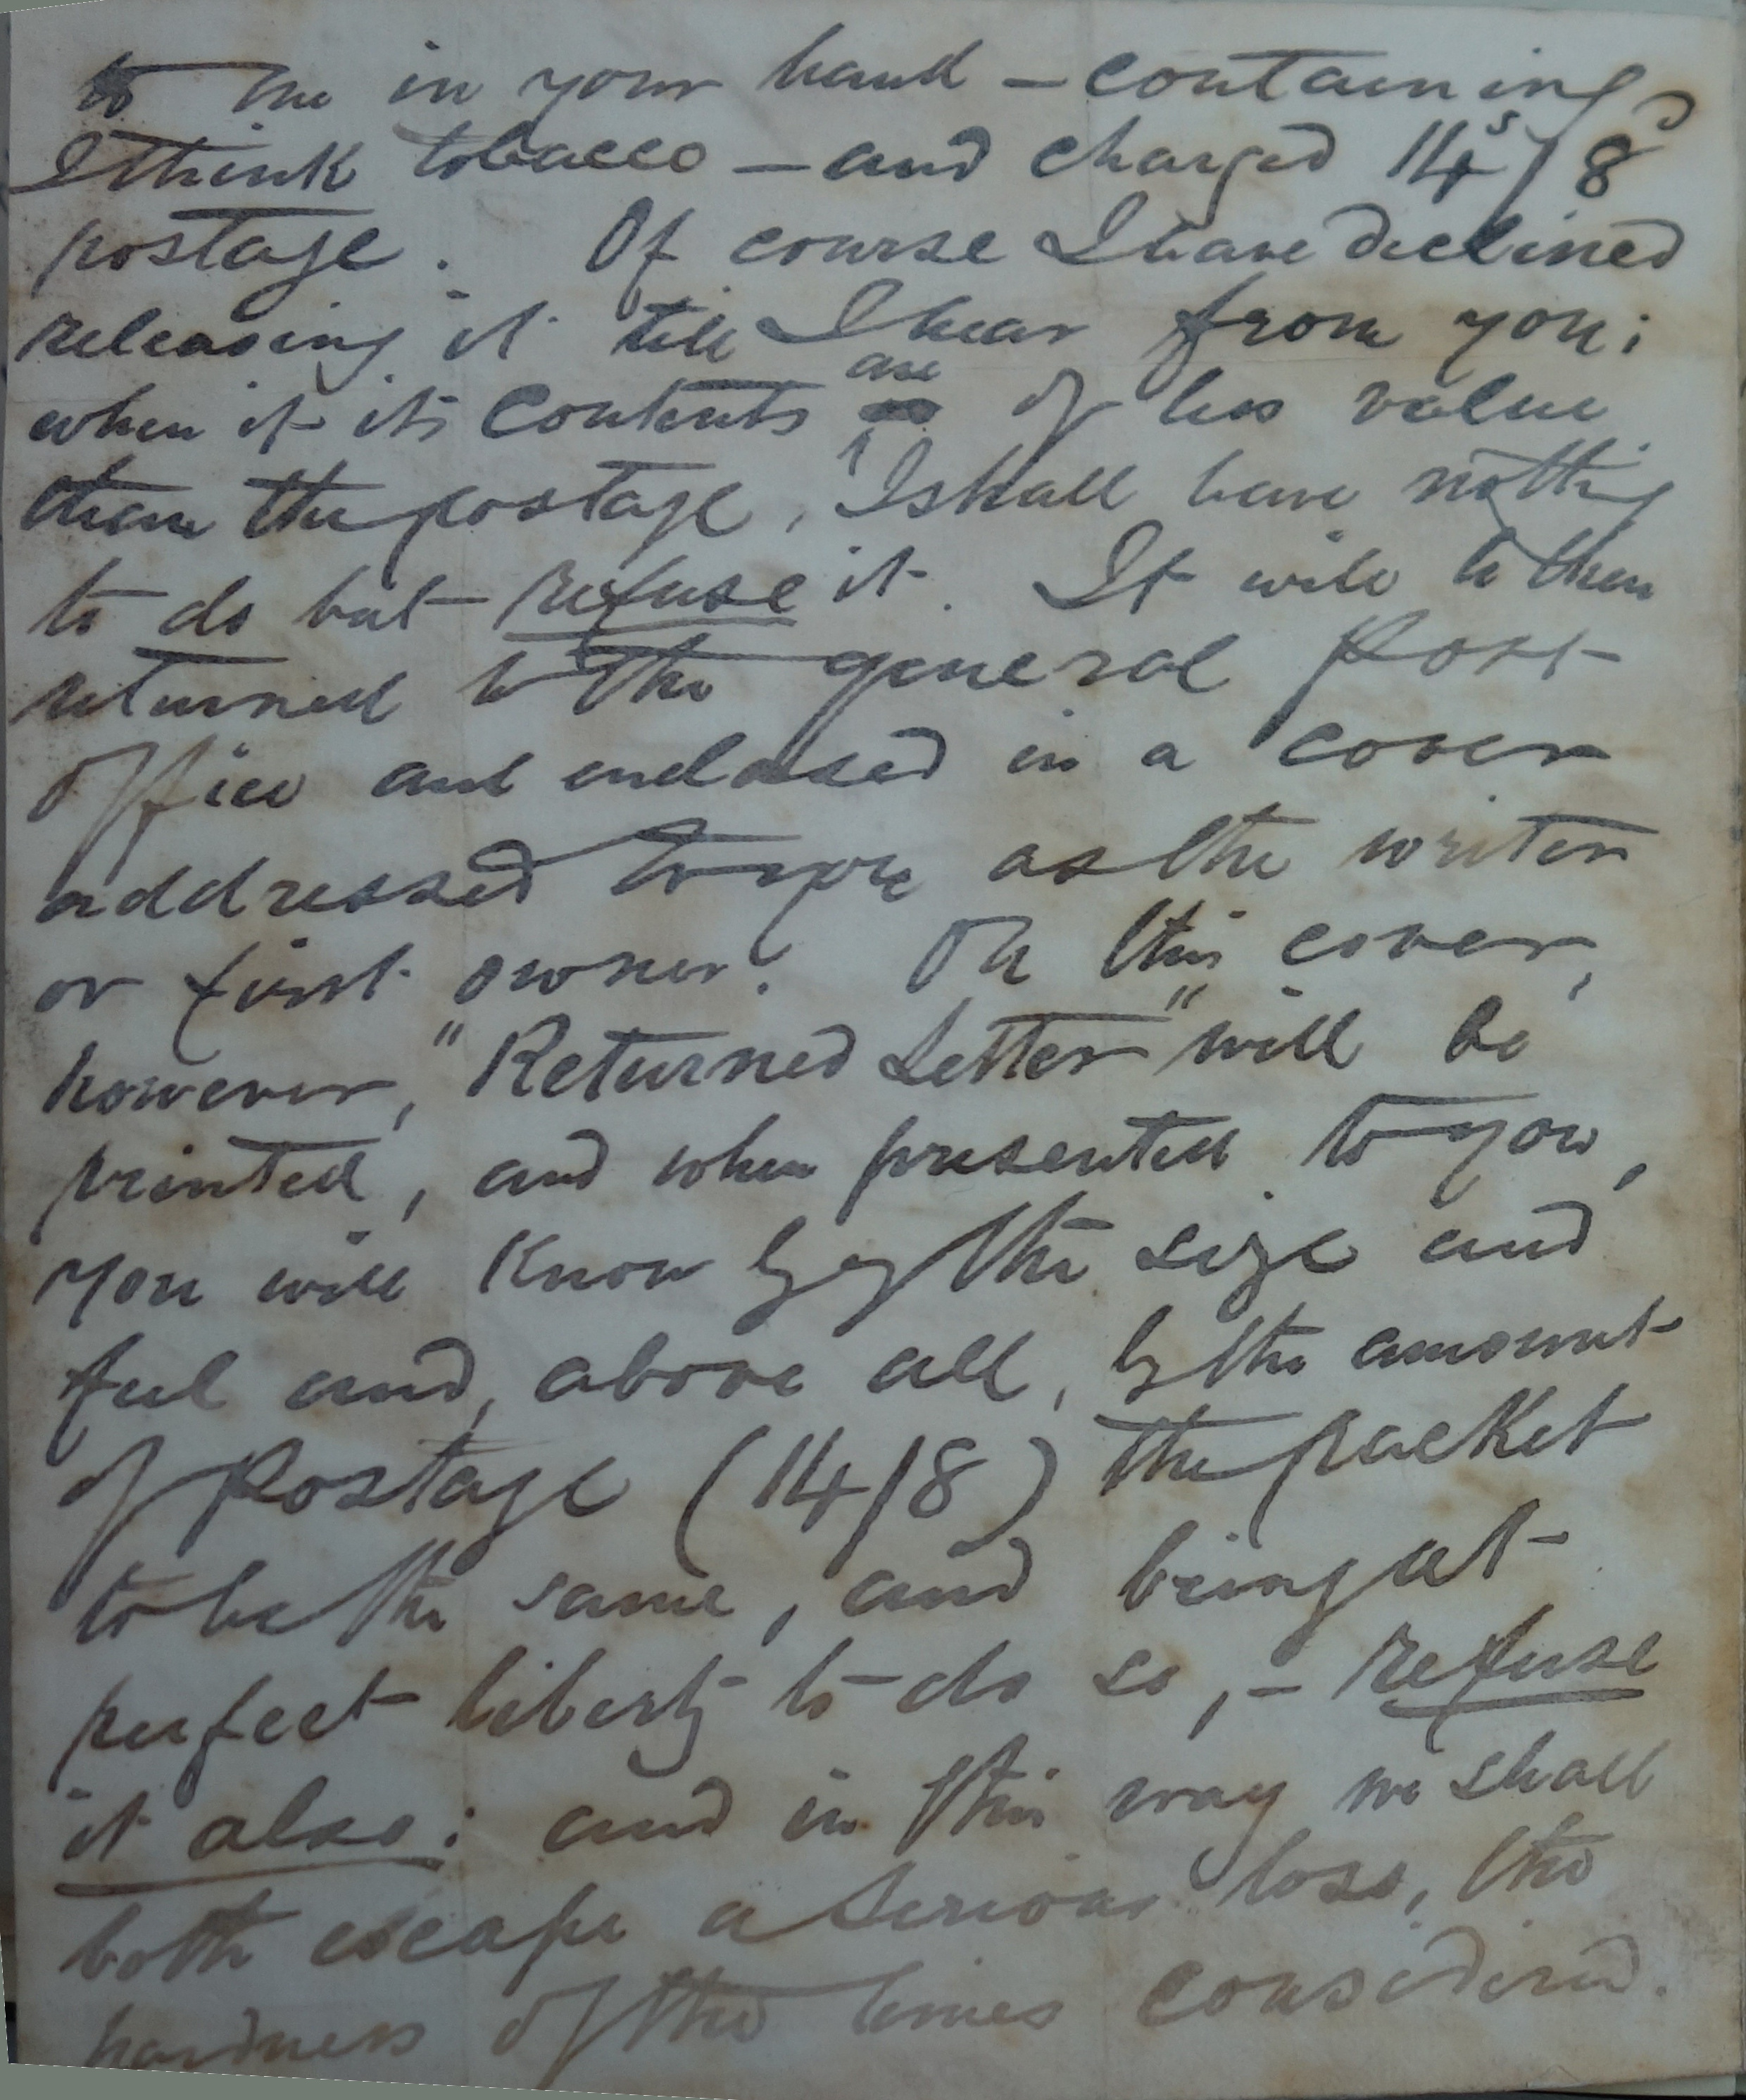 to me in your hand – containing
I think tobacco – and charged 14s/8d
postage. Of course I have declined
releasing it till I hear from you;
when if its contents are of less value
than the postage, I shall have nothing
to do but refuse it. It will be then
returned to the general Post
office and enclosed in a cover
addressed to you as the writer
or first owner. On this cover,
however, "Returned Letter" will be
printed, and when presented to you,
you will know by the size and
feel and, above all, by the amount
of Postage (14/8) the packet
to be the same, and being at
perfect liberty to do so, – refuse
it also: and in this way we shall
both escape a serious loss, the
hardness of the times considered.